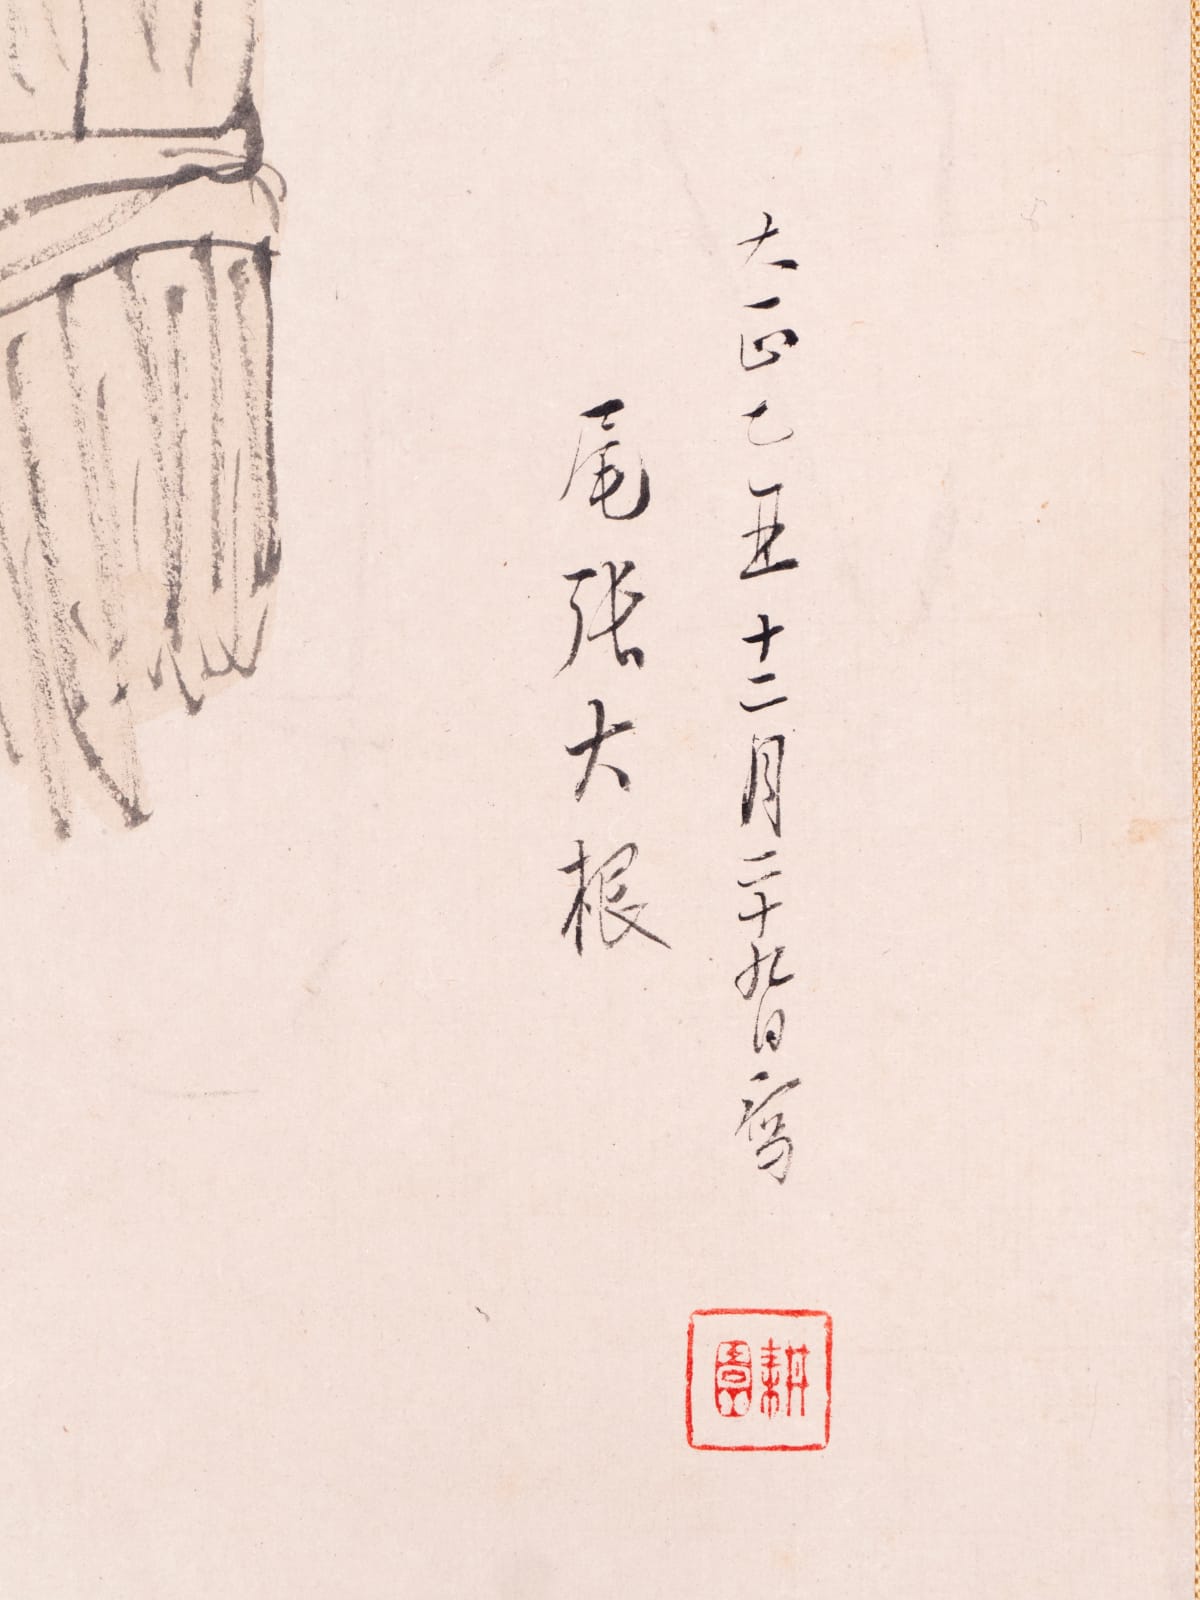 大正乙丑十二月二十九日寫
尾張大根
耕園